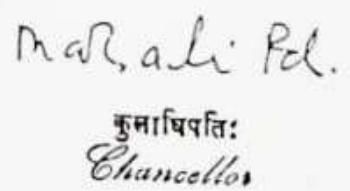 Pd.
कुलाधिपति:
Chancellor